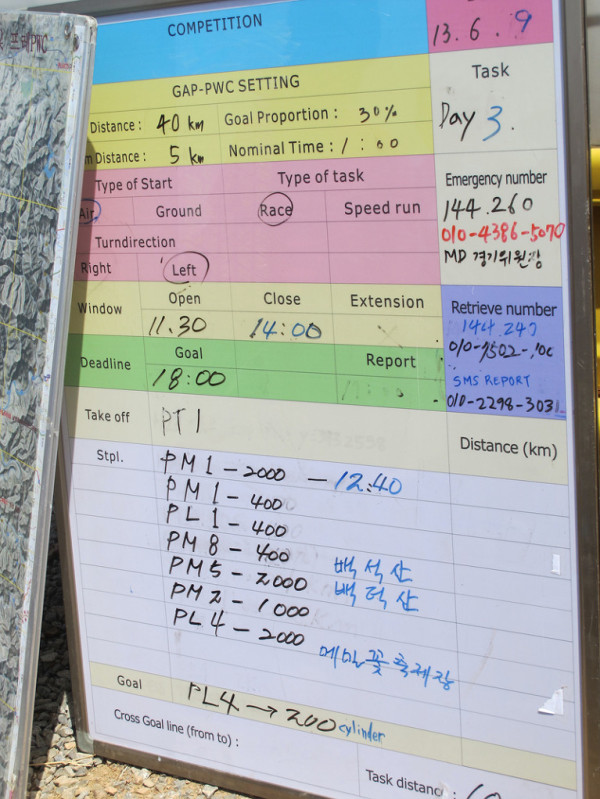 COMPETITION
13.6.9
GAP-PWC SETTING
Task
Distance : 40 km Goal Proportion : 30%
Day 3.
Distance : 5 km Nominal Time : 1 : 00
Type of Start Type of task
Emergency number
144.260
Air Ground Race Speed run
010-4386-5070
Turndirection
MD 경기위원장
Right Left
Window Open Close Extension
11.30 14:00
Retrieve number
144.247
Deadline Goal Report
18:00
SMS REPORT
Take off PT1
Distance (km)
Stpl. PM1-2000 - 12:40
PM1-400
PL1-400
PM8-400
PM5-2000 백석산
PM2-1000 백덕산
PL4-2000
메밀꽃축제장
Goal PL4 → 200 cylinder
Cross Goal line (from to) :
Task distanc